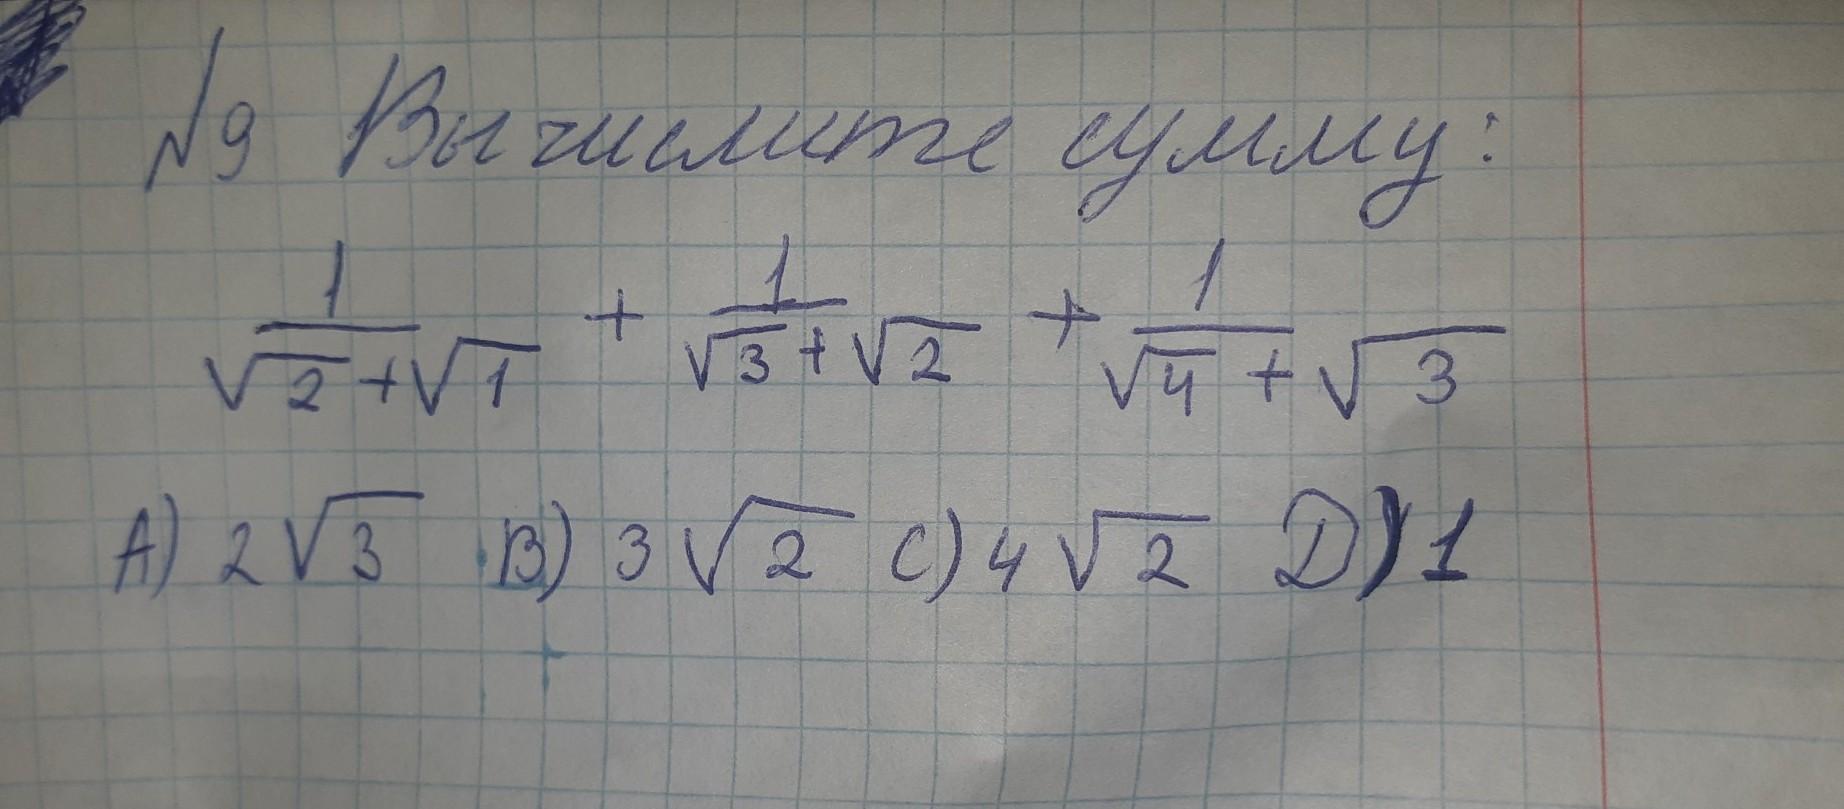 №9 Вычислите сумму:
1/(√2+√1) + 1/(√3+√2) + 1/(√4+√3)
A) 2√3 B) 3√2 C) 4√2 D) 1